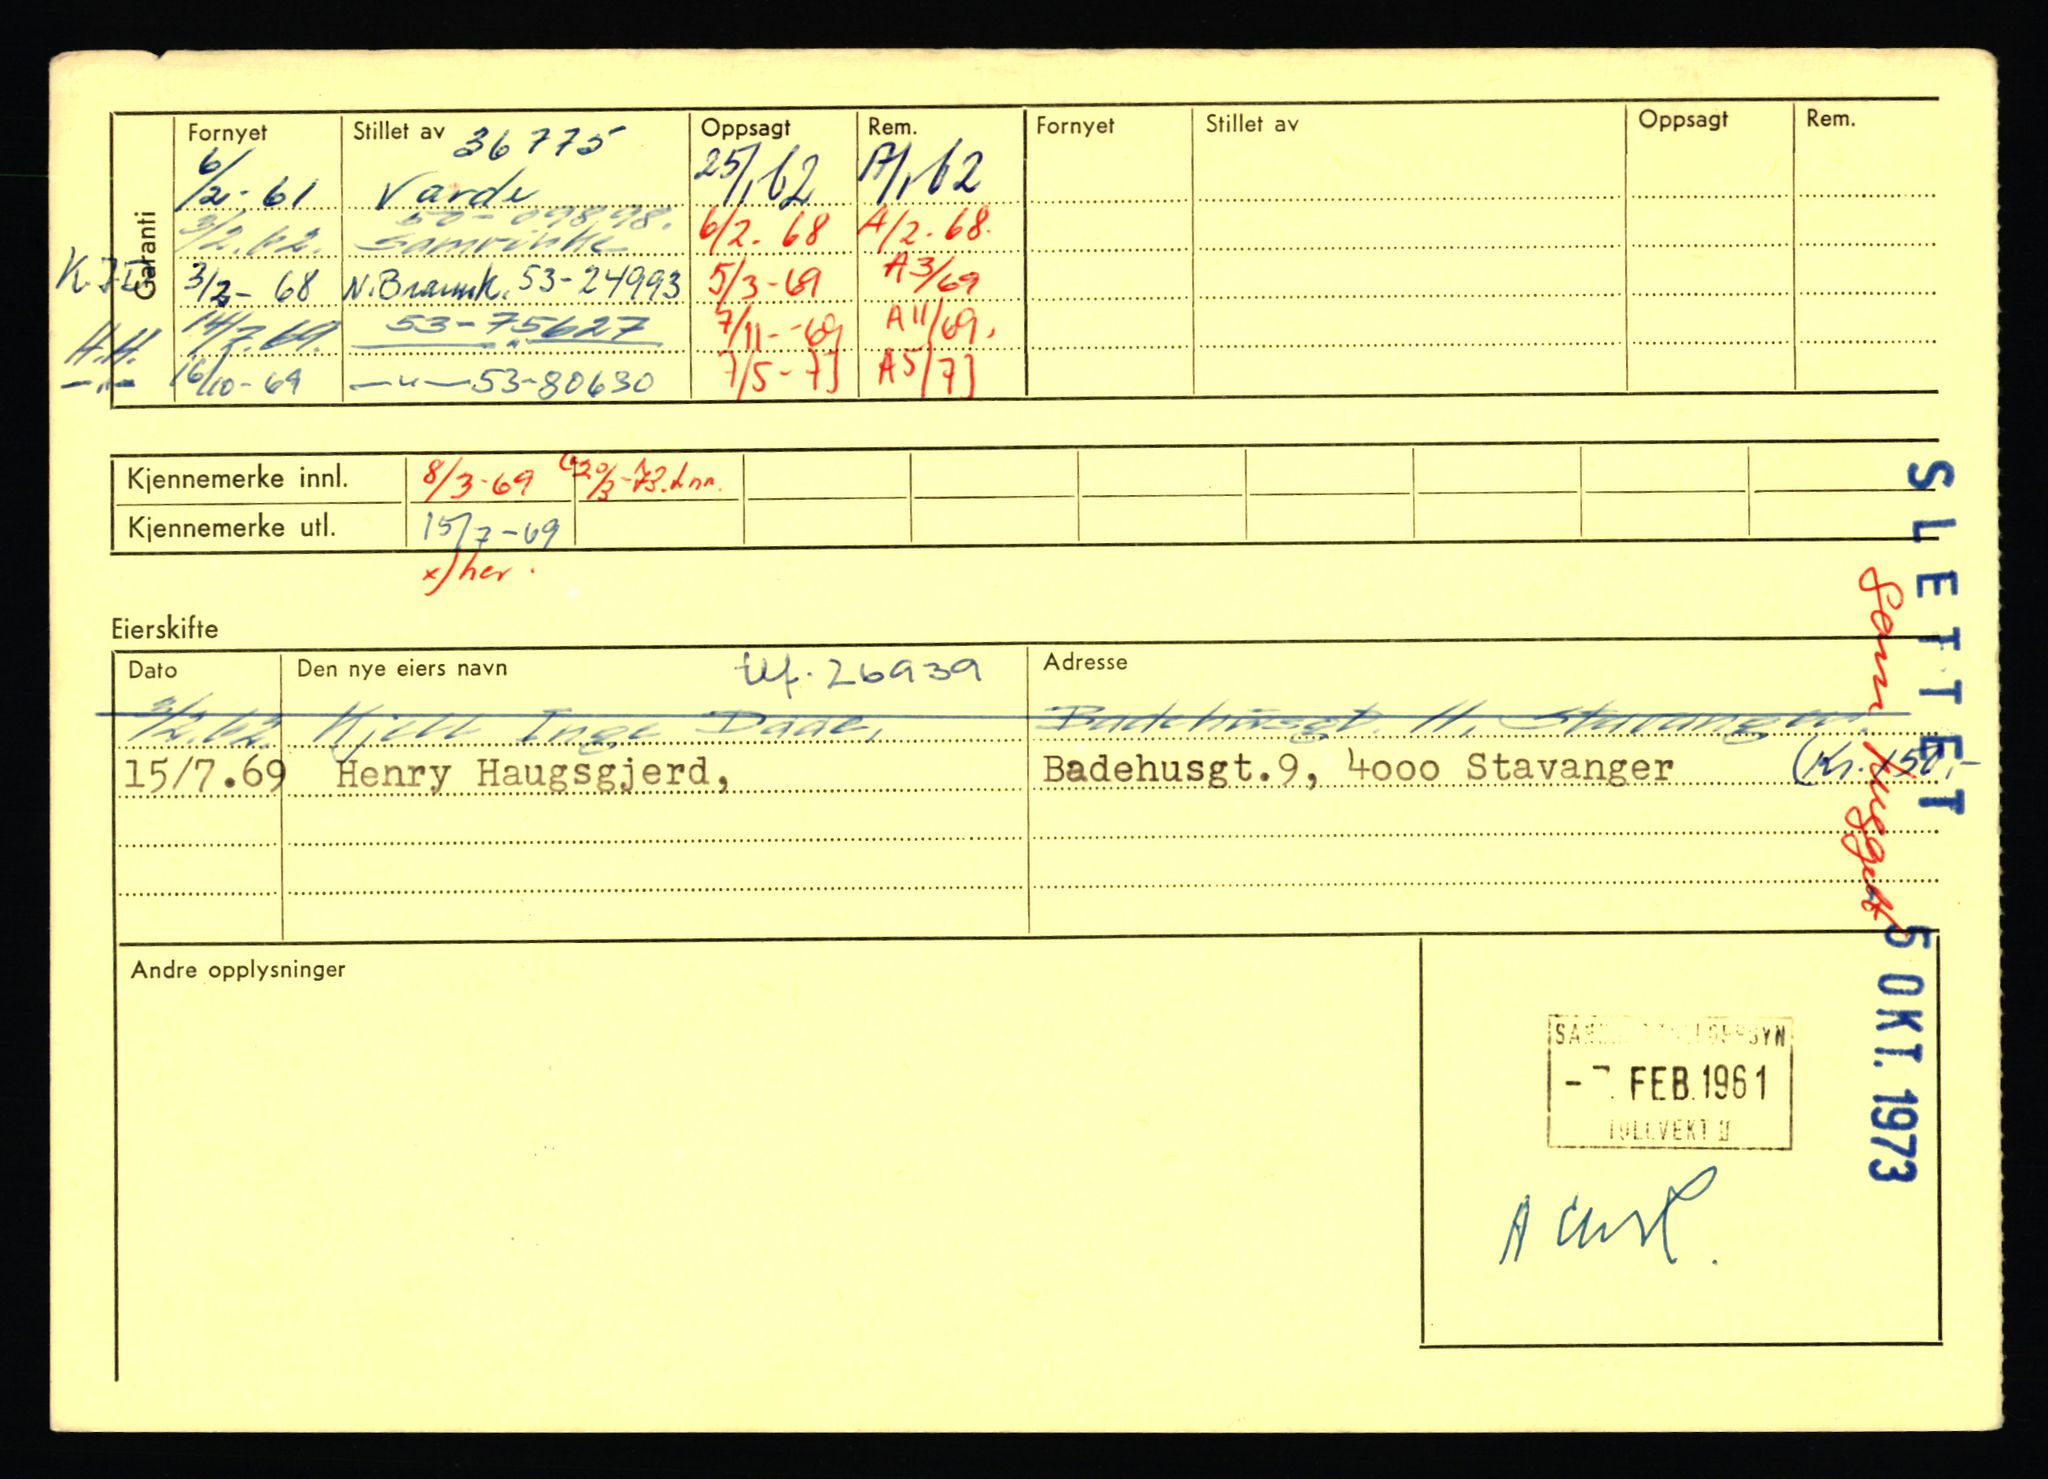 Garanti
Fornyet Stillet av 36775 Oppsagt Rem. Fornyet Stillet av Oppsagt Rem.
6/2-61 Varde 25/1 62 A/1 62
3/2.62. 50-09898. 6/2.68 A/2.68.
3/2-68 53-24993 5/3-69 A3/69
H.H. 14/7.69. 53-75627 7/11-69 A11/69.
16/10-69 —"—53-80630 7/5-71 A5/71
Kjennemerke innl. 8/3-69 20/3-73.
Kjennemerke utl. 15/7-69
x) her.
Eierskifte
Dato Den nye eiers navn tlf. 26939 Adresse
3/2.62. Kjell Inge Daae, Badehusgt. 11, Stavanger.
15/7.69 Henry Haugsgjerd, Badehusgt.9, 4000 Stavanger (Kr. 150,-
Andre opplysninger
SLETTET
Som hugget
5 OKT. 1973
-7. FEB. 1961
TOLLVEKT II